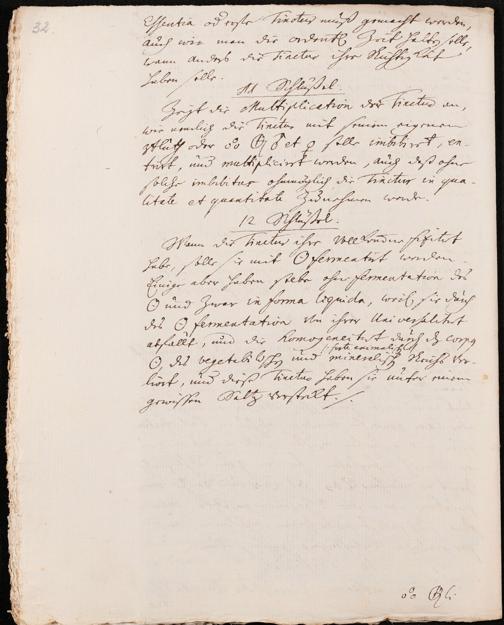 32
Essentia od erste Tinctur muß gemacht werden,
auch wie man die ordentl. Zeit halten solle,
wann anders die Tinctur ihre Richtigkeit
haben solle.
11 Schlüssel.
Zeigt die Multiplication der Tinctur an,
wie nemlich die Tinctur mit seinem eigenen
oder et solle imbibirt,
und multiplicirt werden, auch daß ohne
solche imbibition ohnmöglich die Tinctur in qua-
litate et quantitate Zunehmen werde.
12 Schlüssel.
Wann die Tinctur ihre
habe, solle sie mit ☉ fermentirt werden.
Einige aber haben selbe ohne fermentation des
☉ und zwar in forma liquida, weil sie durch
des ☉ fermentation von ihrer Universalitet
abfällt, und die Homogeneitet durch
☉, des vegetabilischen und mineralischen Reichs ver-
liert, und diese Tinctur haben sie unter einem
gewissen Saltz verstellt.